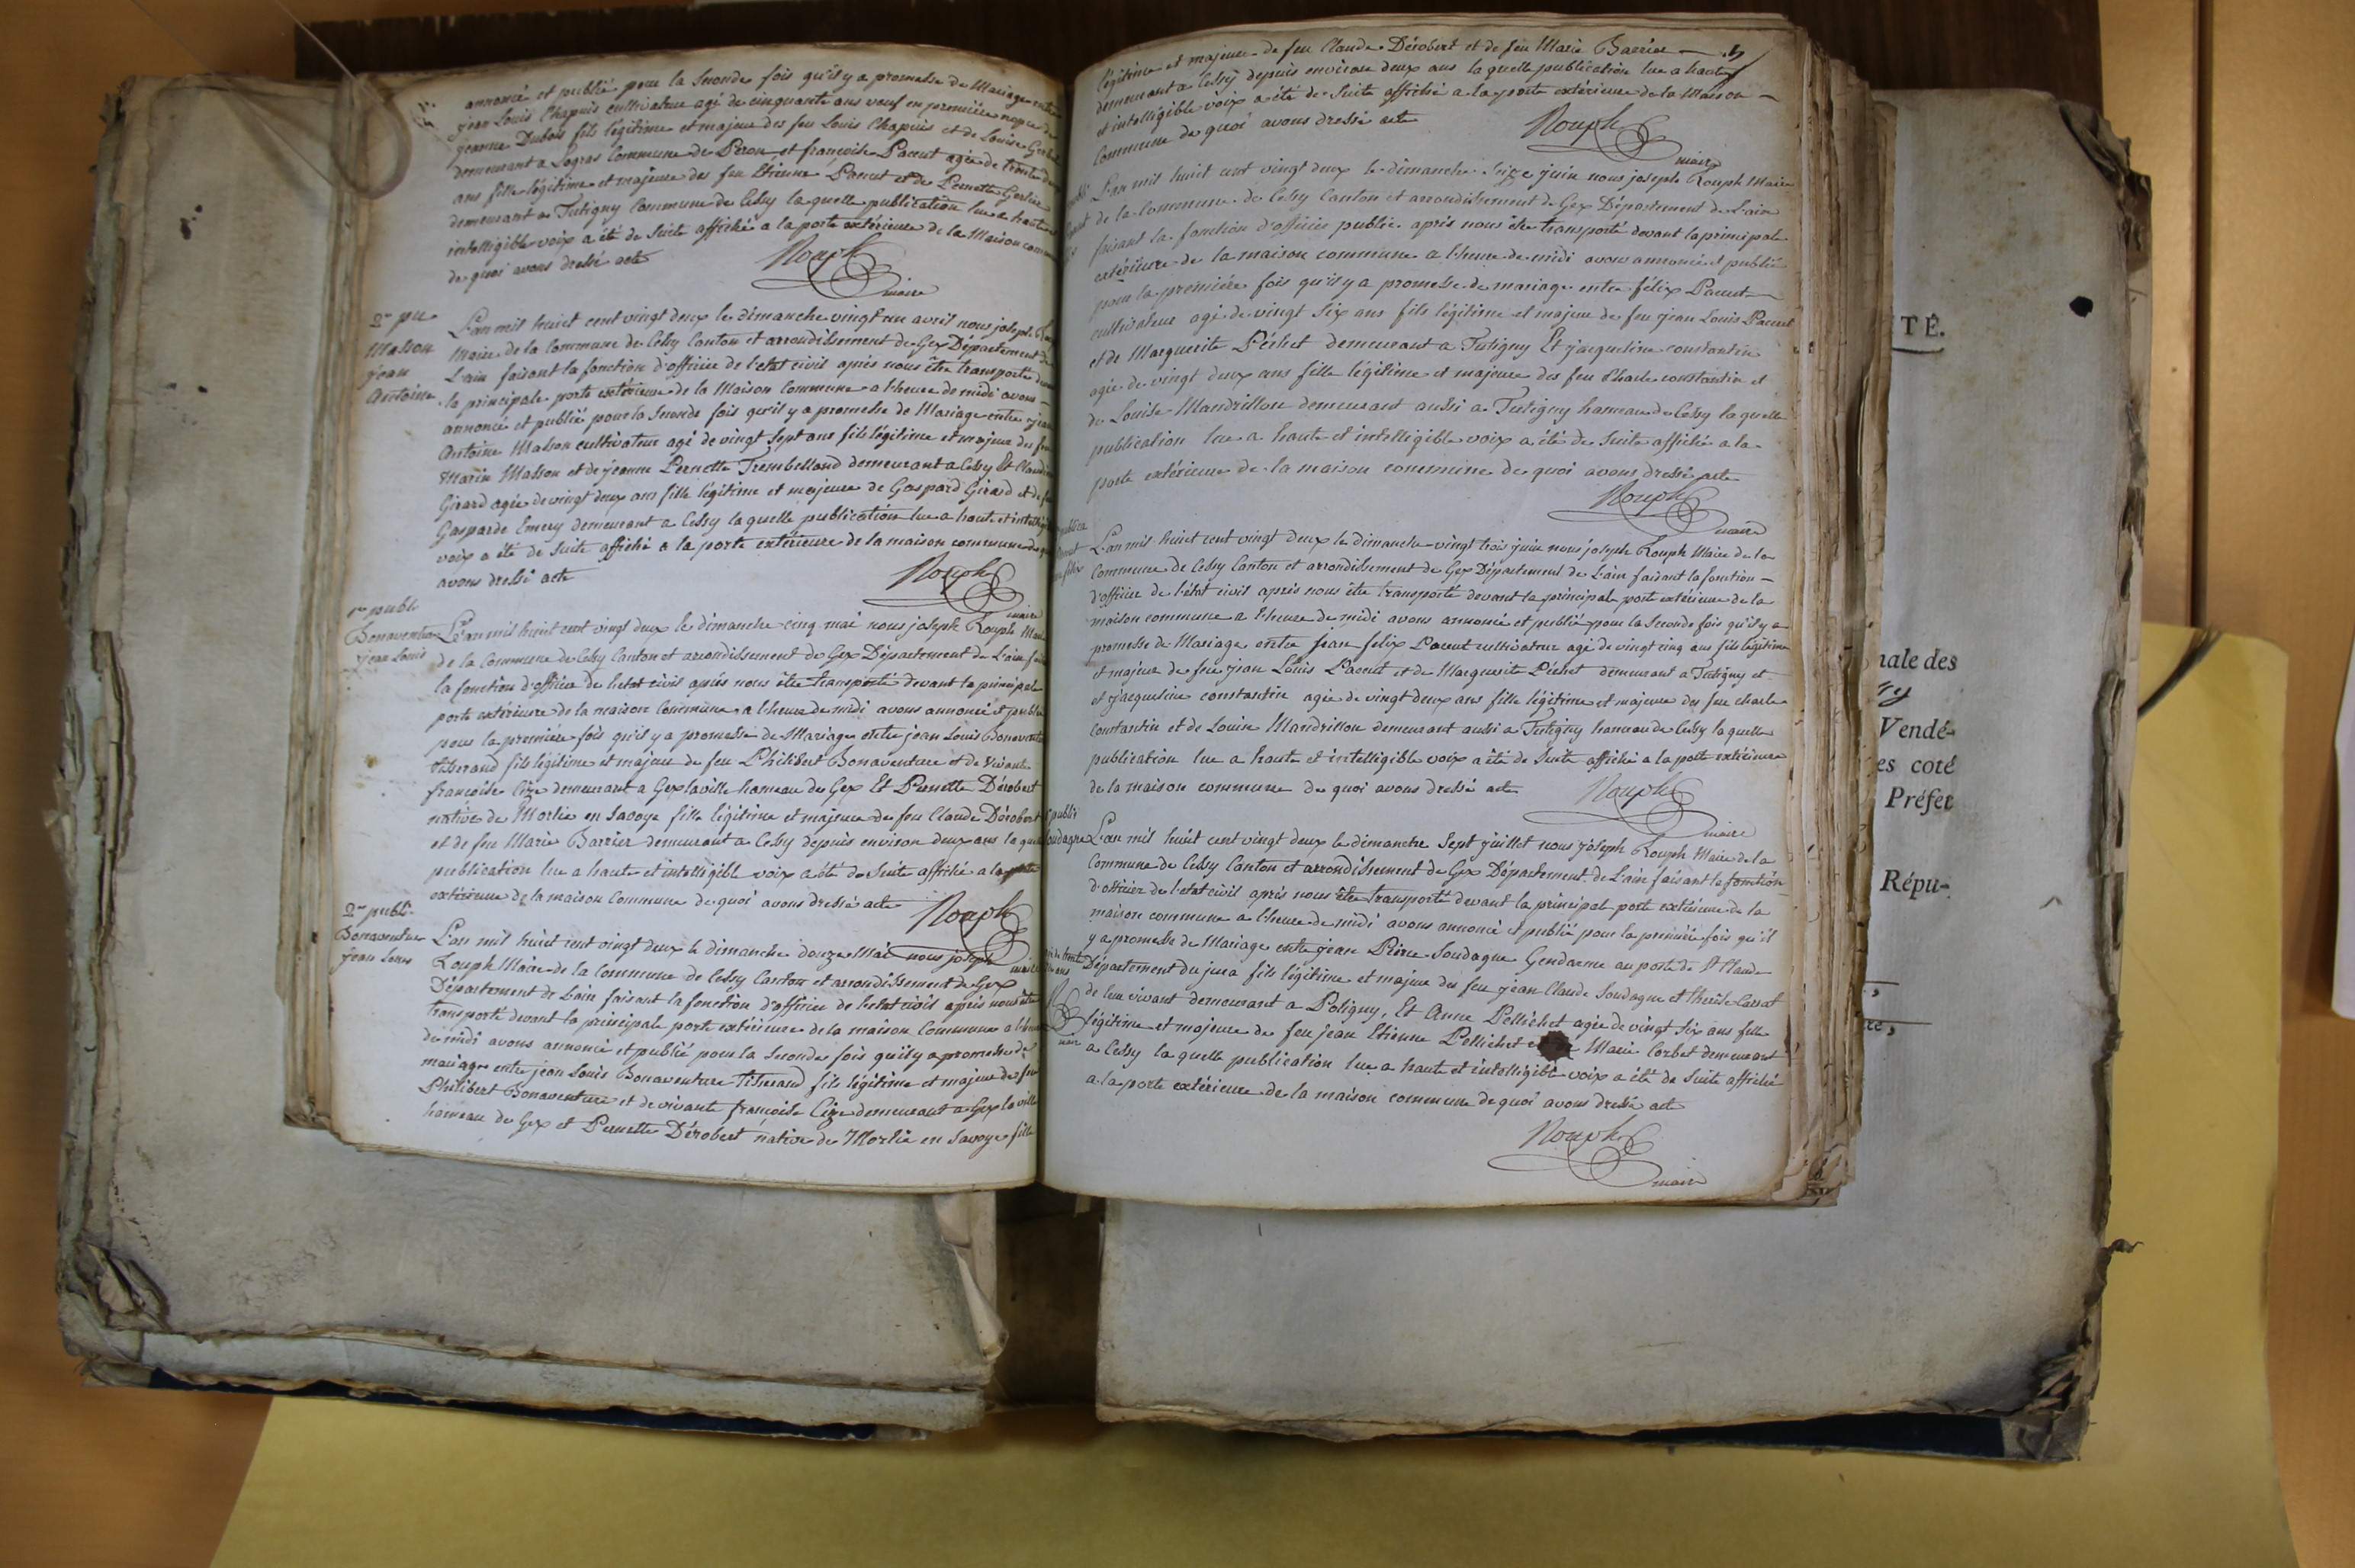 annoncé et publié pour la seconde fois qu'il y a promesse de Mariage entre
jean Louis Chapuis cultivateur agé de cinquante ans veuf en première noces de
jeanne Dubois fils légitime et majeur des feu Louis Chapuis et de Louise
demeurant a Logras Commune de Peron et françoise Paccut agée de trente
ans fille légitime et majeure des feu Etienne Paccut et de Pernette
demeurant a Tutigny Commune de Cessy la quelle publication lue a haute et
intelligible voix a été de suite affiché a la porte extérieure de la Maison commune
de quoi avons dressé acte
Rouph
maire
2me pu
Masson
jean
Antoine
L'an mil huict cent vingt deux le dimanche vingt un avril nous joseph
Maire de la Commune de Cessy Canton et arrondissement de Gex Département de
L'ain faisant la fonction d'officier de l'etat civil après nous être transporté
la principale porte extérieure de la Maison Commune a l'heure de midi avons
annoncé et publié pour la seconde fois qu'il y a promesse de Mariage entre jean
Antoine Masson cultivateur agé de vingt sept ans fils légitime et majeur des feu
Marin Masson et de jeanne Pernette Trembelland demeurant a Cessy Et
Girard agée de vingt deux ans fille légitime et majeure de Gaspard Girard et de
Gasparde Emery demeurant a Cessy la quelle publication lue a haute et
voix a été de suite affiché a la porte extérieure de la maison commune de
avons dressé acte
Rouph
maire
1re publi
Bonaventure
jean Louis
L'an mil huict cent vingt deux le dimanche cinq mai nous joseph Rouph Maire
de la Commune de Cessy Canton et arrondissement de Gex Département de L'ain
la fonction d'officier de l'etat civil après nous être transporté devant la principale
porte extérieure de la maison Commune a l'heure de midi avons annoncé et publié
pour la première fois qu'il y a promesse de Mariage entre jean Louis Bonaventure
tisserand fils légitime et majeur de feu Philibert Bonaventure et de vivante
françoise Cize demeurant a Gex la ville hameau de Gex Et Pernette Dérobert
native de Morlie en Savoye fille légitime et majeure de feu Claude Dérobert
et de feu Marie Barrier demeurant a Cessy depuis environ deux ans la quelle
publication lue a haute et intelligible voix a été de suite affiché a la porte
extérieure de la maison Commune de quoi avons dressé acte
Rouph
maire
2me publi
Bonaventure
jean Louis
L'an mil huict cent vingt deux le dimanche douze Mai nous joseph
Rouph Maire de la Commune de Cessy Canton et arrondissement de Gex
Département de L'ain faisant la fonction d'officier de l'etat civil après nous être
transporté devant la principale porte extérieure de la maison Commune a l'heure
de midi avons annoncé et publié pour la seconde fois qu'il y a promesse de
mariage entre jean Louis Bonaventure tisserand fils légitime et majeur de feu
Philibert Bonaventure et de vivante françoise Cize demeurant a Gex la ville
hameau de Gex et Pernette Dérobert native de Morlie en Savoye fille
légitime et majeure de feu Claude Dérobert et de feu Marie Barrier
demeurant a Cessy depuis environ deux ans la quelle publication lue a haute
et intelligible voix a été de suite affiché a la porte extérieure de la Maison
Commune de quoi avons dressé acte
Rouph
maire
L'an mil huict cent vingt deux le dimanche seize juin nous joseph Rouph Maire
de la Commune de Cessy Canton et arrondissement de Gex Département de L'ain
faisant la fonction d'officier public après nous être transporté devant la principale
extérieure de la maison commune a l'heure de midi avons annoncé et publié
pour la première fois qu'il y a promesse de mariage entre félix Paccut
cultivateur agé de vingt six ans fils légitime et majeur de feu jean Louis Paccut
et de Marguerite Péchet demeurant a Tutigny Et jacqueline constantin
agée de vingt deux ans fille légitime et majeure des feu Charle constantin et
de Louise Mandrillon demeurant aussi a Tutigny hameau de Cessy la quelle
publication lue a haute et intelligible voix a été de suite affiché a la
porte extérieure de la maison commune de quoi avons dressé acte
Rouph
maire
L'an mil huict cent vingt deux le dimanche vingt trois juin nous joseph Rouph Maire de la
Commune de Cessy Canton et arrondissement de Gex Département de L'ain faisant la fonction
d'officier de l'état civil après nous être transporté devant la principale porte extérieure de la
maison commune a l'heure de midi avons annoncé et publié pour la seconde fois qu'il y a
promesse de Mariage entre jean felix Paccut cultivateur agé de vingt cinq ans fils légitime
et majeur de feu jean Louis Paccut et de Marguerite Pechet demeurant a Tutigny et
et jacqueline constantin agée de vingt deux ans fille légitime et majeure des feu charle
Constantin et de Louise Mandrillon demeurant aussi a Tutigny hameau de Cessy la quelle
publication lue a haute et intelligible voix a été de suite affiché a la porte extérieure
de la maison commune de quoi avons dressé acte
Rouph
maire
publi
Soudagne
L'an mil huict cent vingt deux le dimanche sept juillet nous joseph Rouph Maire de la
Commune de Cessy Canton et arrondissement de Gex Département de L'ain faisant la fonction
d'officier de l'etat civil après nous être transporté devant la principale porte extérieure de la
maison commune a l'heure de midi avons annoncé et publié pour la première fois qu'il
y a promesse de Mariage entre jean Pierre Soudagne Gendarme au poste de St Claude
Département du jura fils légitime et majeur des feu jean Claude Soudagne et thérèse Carrat
de leur vivant demeurant a Poligny, Et Anne Pellichet agée de vingt six ans fille
légitime et majeure de feu jean Etienne Pellichet et Marie Corbet demeurant
a Cessy la quelle publication lue a haute et intelligible voix a été de suite affiché
a la porte extérieure de la maison commune de quoi avons dressé acte
Rouph
maire
TÉ.
nale des
Vendé-
es coté
Préfet
Répu-